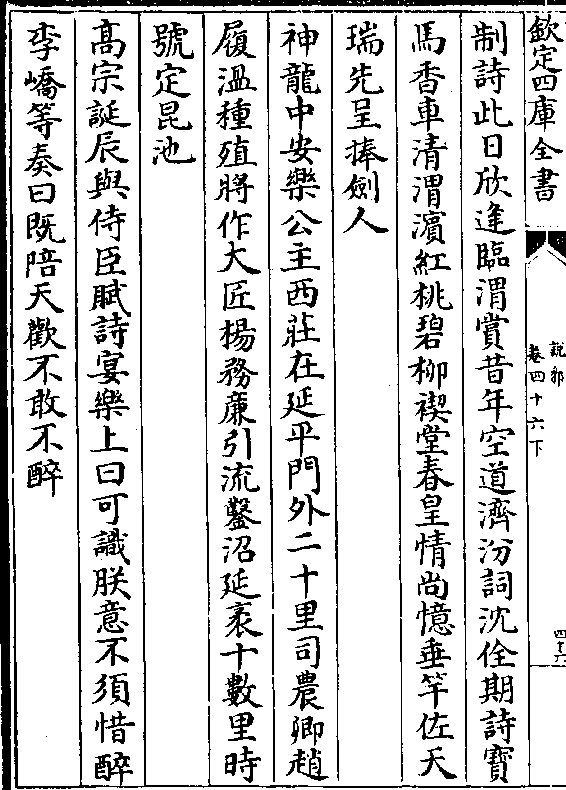 欽定四庫全書
說郛
卷四十六下
四十六
制詩此日欣逢臨渭賞昔年空道濟汾詞沈佺期詩寳
馬香車清渭濵紅桃碧柳禊堂春皇情尚憶垂竿佐天
瑞先呈捧劍人
神龍中安樂公主西莊在延平門外二十里司農卿趙
履溫種殖將作大匠楊務亷引流鑿沼延袤十數里時
號定昆池
髙宗誕辰與侍臣賦詩宴樂上曰可識朕意不須惜醉
李嶠等奏曰既陪天歡不敢不醉